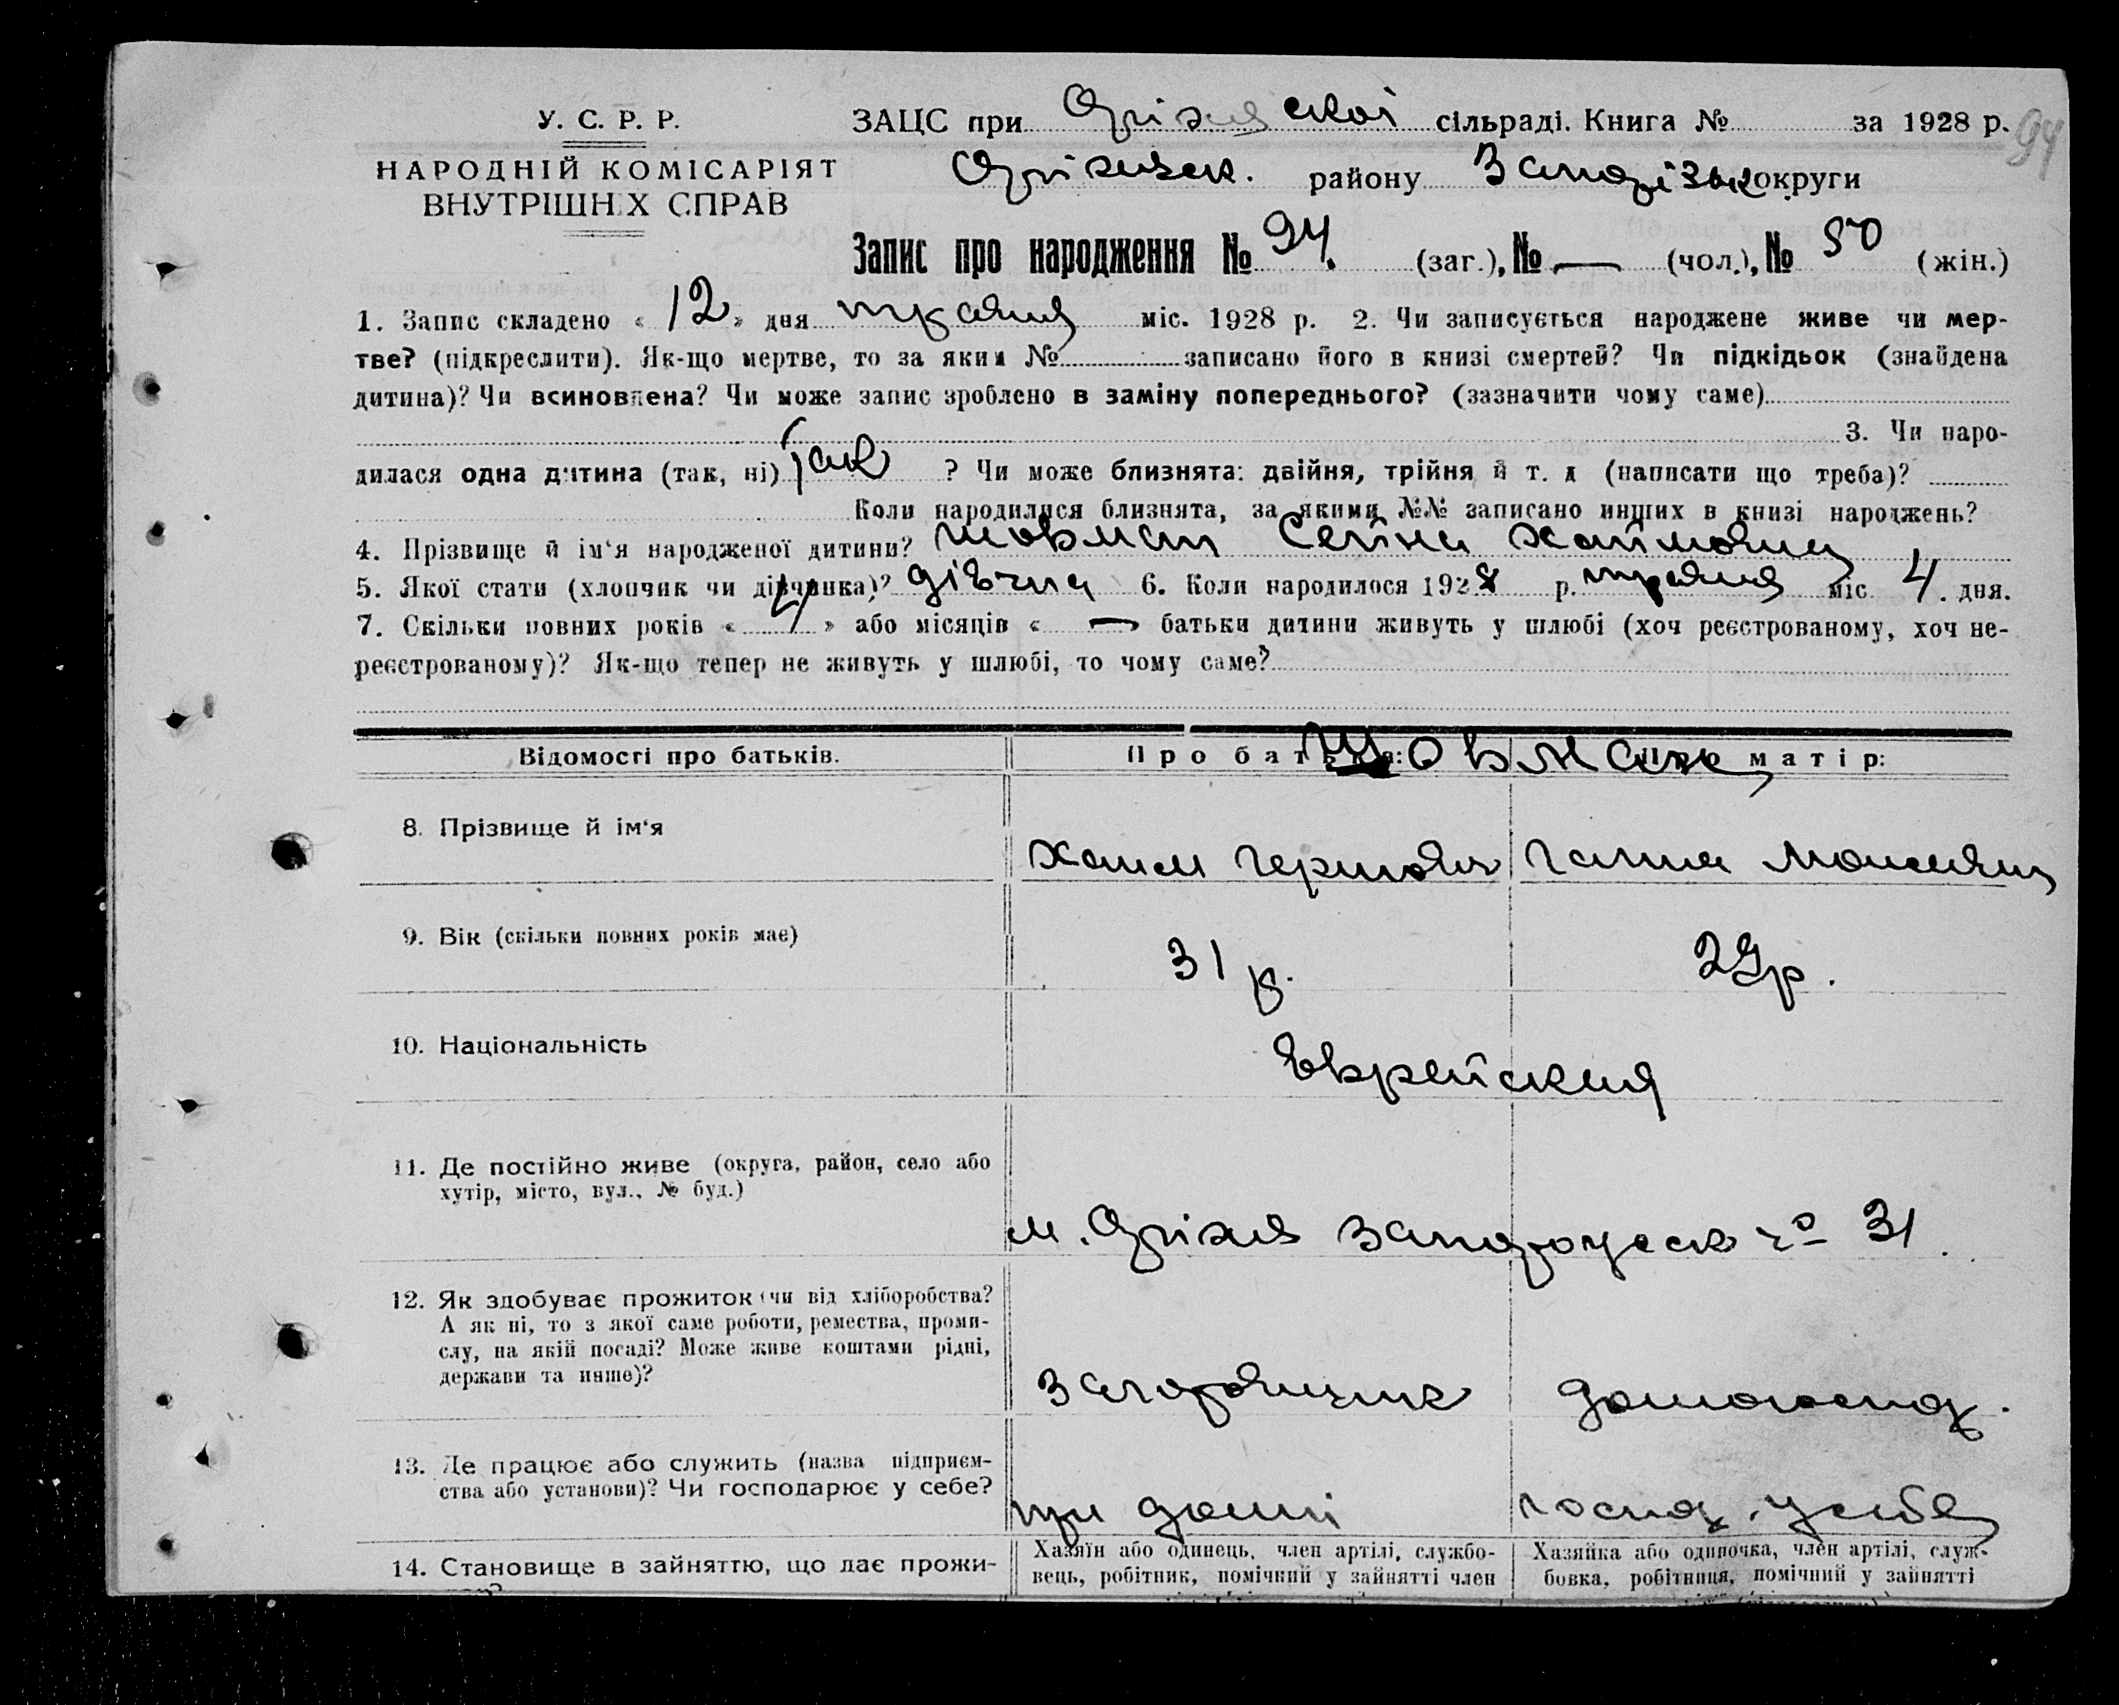 У. С. Р. Р.
НАРОДНІЙ КОМІСАРІЯТ
ВНУТРІШНІХ СПРАВ
ЗАЦС при Оріхівскої сільраді. Книга № за 1928 р.
94
Оріхівск. району Запорізьк округи
Запис про народження № 94. (заг.), № — (чол.), № 50 (жін.)
1. Запис складено « 12 » дня травня міс. 1928 р. 2. Чи записується народжене живе чи мер-
тве? (підкреслити). Як-що мертве, то за яким № записано його в книзі смертей? Чи підкідьок (знайдена
дитина)? Чи всиновлена? Чи може запис зроблено в заміну попереднього? (зазначити чому саме)
3. Чи наро-
дилася одна дитина (так, ні) так ? Чи може близнята: двійня, трійня й т. д (написати що треба)?
Коли народилися близнята, за якими №№ записано инших в книзі народжень?
4. Прізвище й ім‘я народженої дитини? Шовман Хаймовна
5. Якої стати (хлопчик чи дівчинка)? дівчина 6. Коли народилося 1928 р. травня міс 4. дня.
7. Скільки повних років « 4 » або місяців « — » батьки дитини живуть у шлюбі (хоч реєстрованому, хоч не-
реєстрованому)? Як-що тепер не живуть у шлюбі, то чому саме?
Відомості про батьків. Про батька: Про матір:
Шовман
8. Прізвище й ім‘я Хаим Гершович Ганна
9. Вік (скільки повних років має) 31 р. 29 р.
10. Національність Еврейския
11. Де постійно живе (округа, район, село або
хутір, місто, вул., № буд.)
м. Оріхів № 31.
12. Як здобуває прожиток (чи від хліборобства?
А як ні, то з якої саме роботи, ремества, проми-
слу, на якій посаді? Може живе коштами рідні,
держави та инше)?
домогоспод.
13. Де працює або служить (назва підприєм-
ства або установи)? Чи господарює у себе?
при домі господ. у себе
14. Становище в зайняттю, що дає прожи-
Хазяїн або одинець, член артілі, службо-
вець, робітник, помічний у зайнятті член
Хазяйка або одиночка, член артілі, служ-
бовка, робітниця, помічний у зайнятті